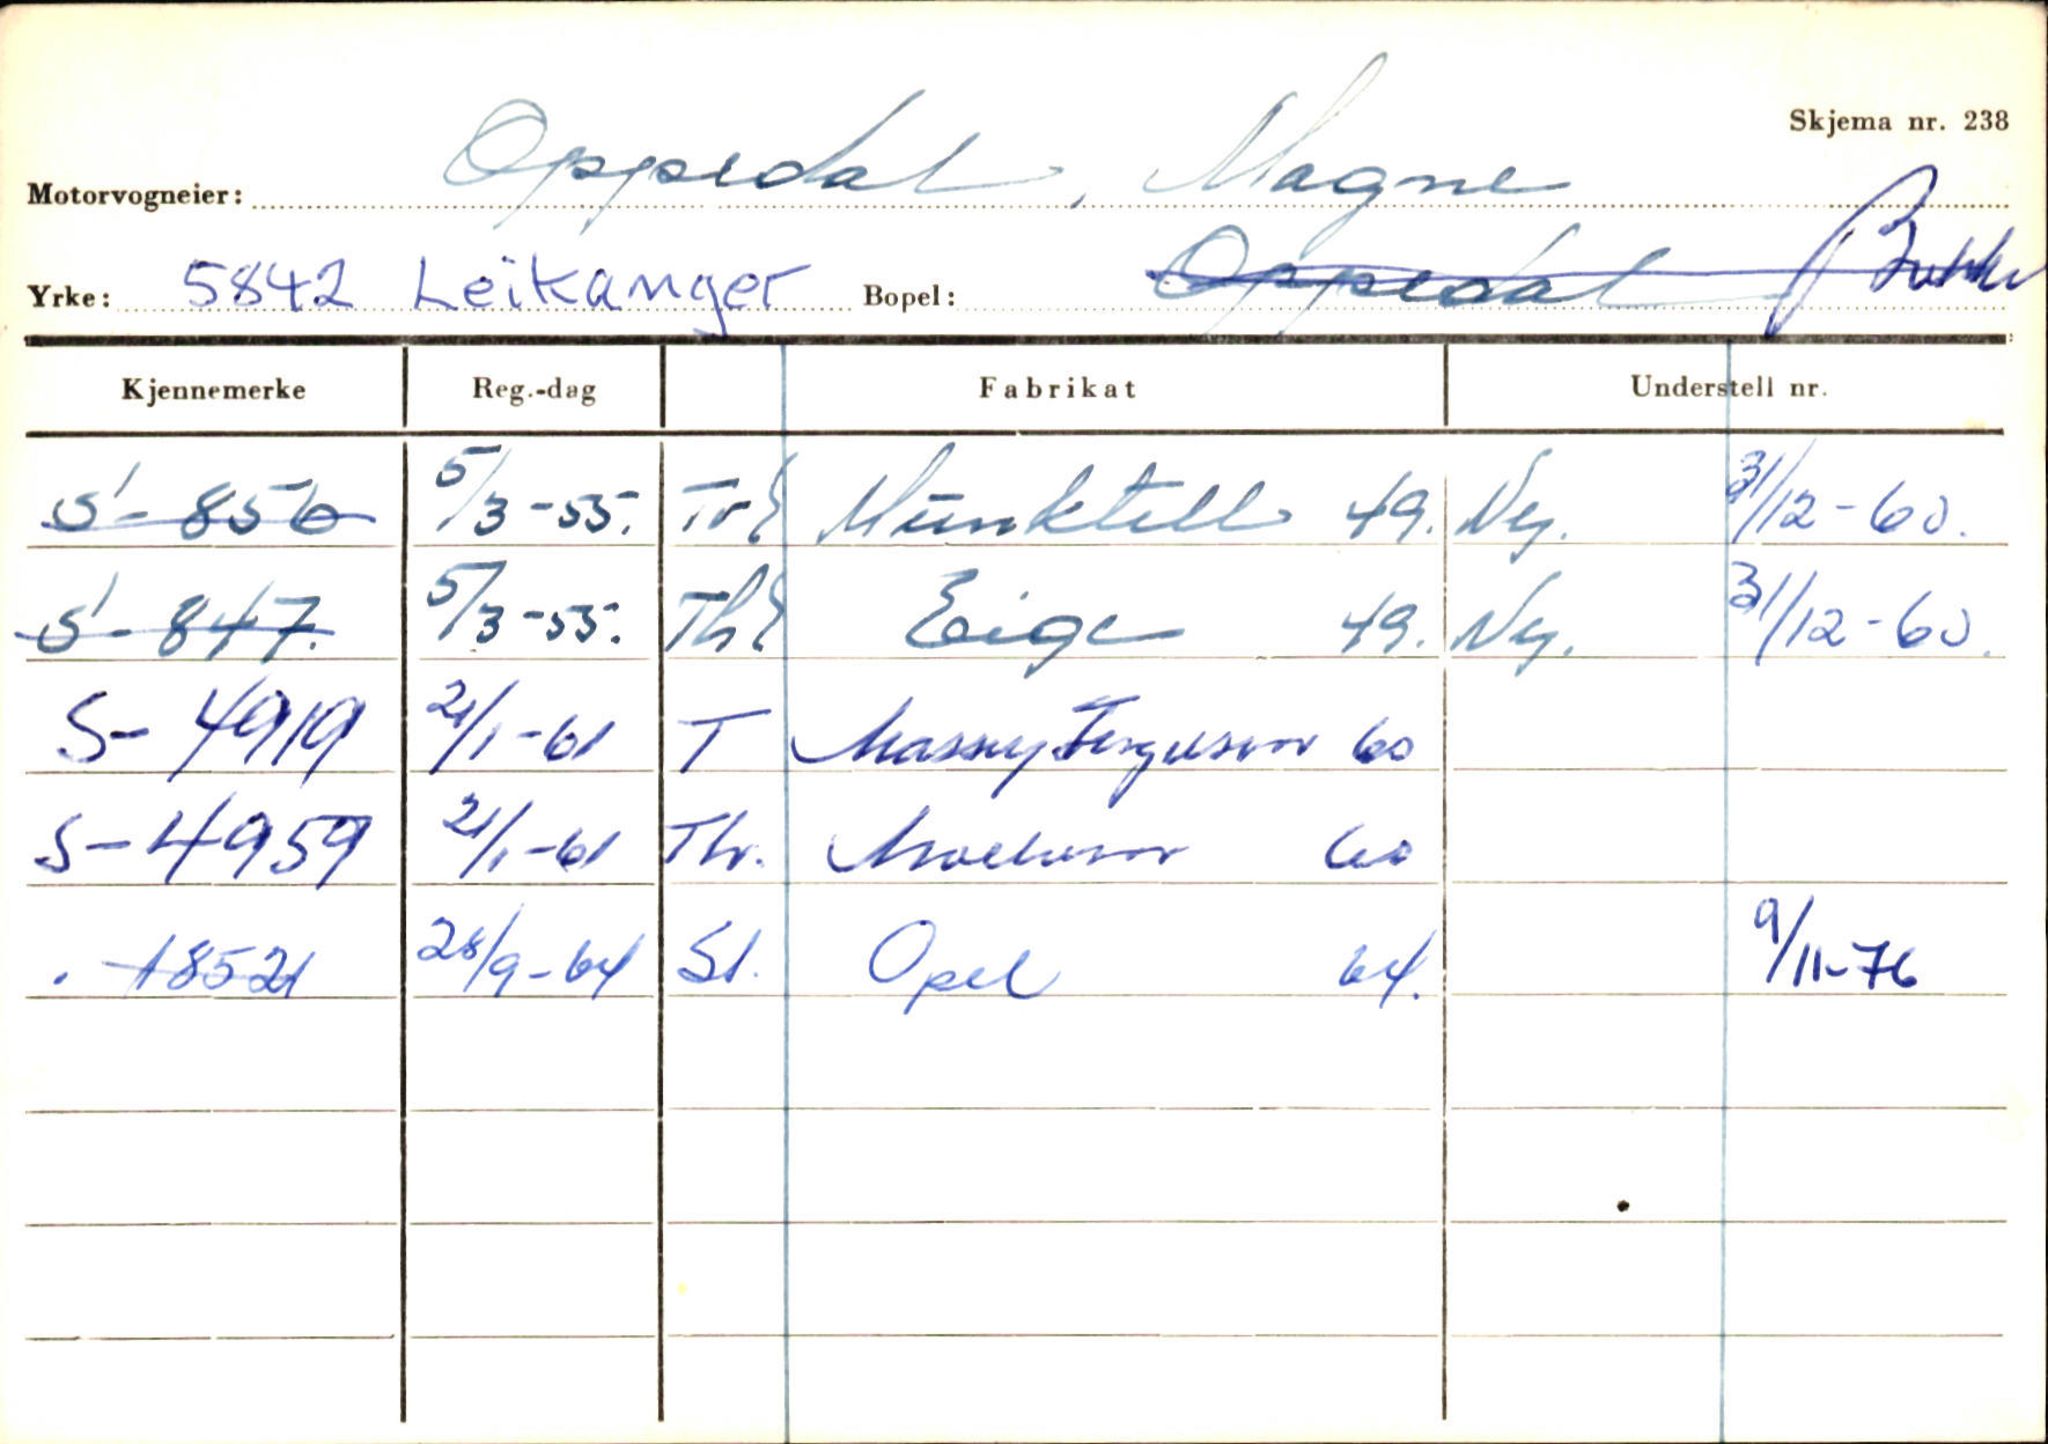 Skjema nr. 238
Motorvogneier: Oppedal, Magne
Yrke: 5842 Leikanger Bopel: Oppedal
Kjennemerke Reg.-dag Fabrikat Understell nr.
S-856 5/3-55. Tr Munktell 49. Ny. 31/12-60.
S-847. 5/3-55. Th Eige 49. Ny. 31/12-60.
S-4919 21/1-61 T Massey Ferguson 60
S-4959 21/1-61 Thr. 60
18521 28/9-64 St. Opel 64. 9/11-76